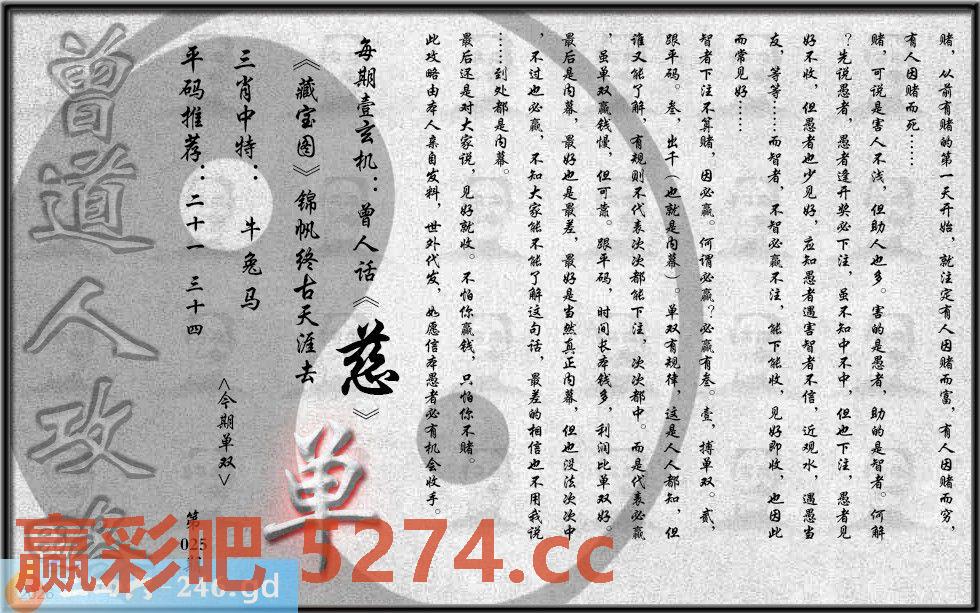 赌，从前有赌的第一天开始，就注定有人因赌而富，有人因赌而穷，
有人因赌而死……
赌，可说是害人不浅，但助人也多。害的是愚者，助的是智者。何解
？先说愚者，愚者逢开奖必下注，虽不知中不中，但也下注，愚者见
好不收，但愚者也少见好，应知愚者遇害智者不信，近观水，遇愚当
友，等等……而智者，不智必赢不注，能下能收，见好即收，也因此
而常见好……
智者下注不算赌，因必赢。何谓必赢？必赢有叁。壹，搏单双。贰，
跟平码。叁，出千（也就是内幕）。单双有规律，这是人人都知，但
谁又能了解，有规则不代表次次都能下注，次次都中。而是代表必赢
，虽单双赢钱慢，但可靠。跟平码，时间长本钱多，利润比单双好。
最后是内幕，最好也是最差，最好是当然真正内幕，但也没法次次中
，不过也必赢，不知大家能不能了解这句话，最差的相信也不用我说
……到处都是内幕。
最后还是对大家说，见好就收。不怕你赢钱，只怕你不赌。
此攻略由本人亲自发料，世外代发，如愿信本愚者必有机会收手。
每期壹玄机：曾人话《慈》
《藏宝图》锦帆终古天涯去
三肖中特：牛兔马
平码推荐：二十一 三十四
<今期单双>
单
第025期
曾道人攻略
赢彩吧 5274.cc
-246.gd